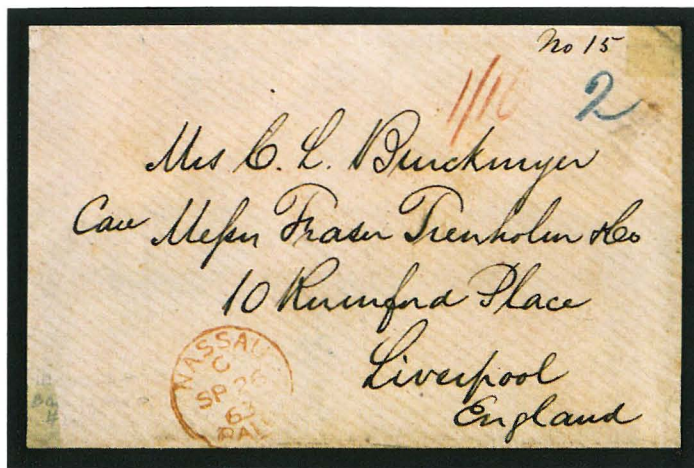 No 15
1/10
2
Mrs C. L. Burckmyer
Care Messrs Fraser Trenholm & Co
10 Rumford Place
Liverpool
England
NASSAU
C
SP 26
63
PAID